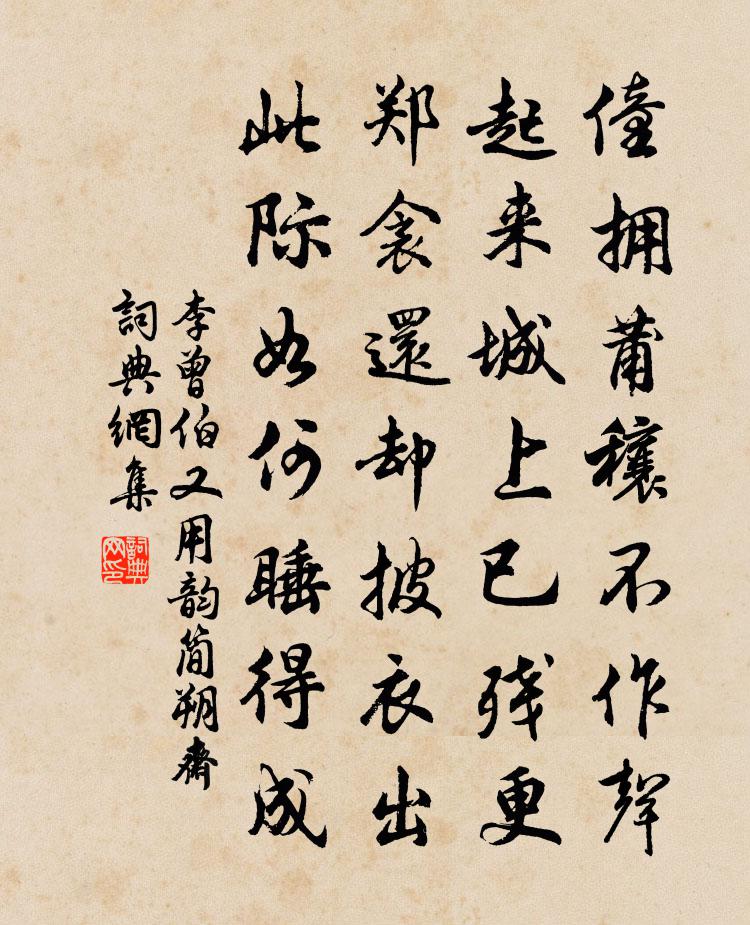 僮拥莆穰不作聲
起来城上已残更
郑衾還却披衣出
此际如何睡得成
李曾伯又用韵简朔齋
詞典網集
詞典网印